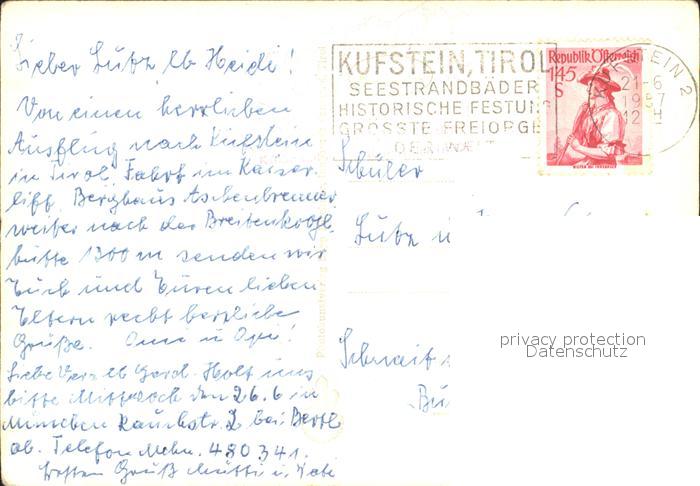 Lieber Lutz lb Heidi!
Von einen herrlichen
Ausflug nach Kufstein
in Tirol. Fahrt im Kaiser
lift, Berghaus Aschenbrenner
weiter nach der
hütte 1300 m senden wir
Euch und Euren lieben
Eltern recht herzliche
Grüße. Oma u Opi!
Liebe lb Gerd. Holt uns
bitte Mittwoch den 26.6 in
München 2 bei Bertl
ab. Telefon 480341.
Gruß Mutti u.
KUFSTEIN, TIROL
SEESTRANDBÄDER
HISTORISCHE FESTUNG
GRÖSSTE FREIORGE
DER WELT
Republik Österreich
145
S
KUFSTEIN 2
21-6
1957
12 H
Schüler
Lutz u
Schmidt
Bu
privacy protection
Datenschutz